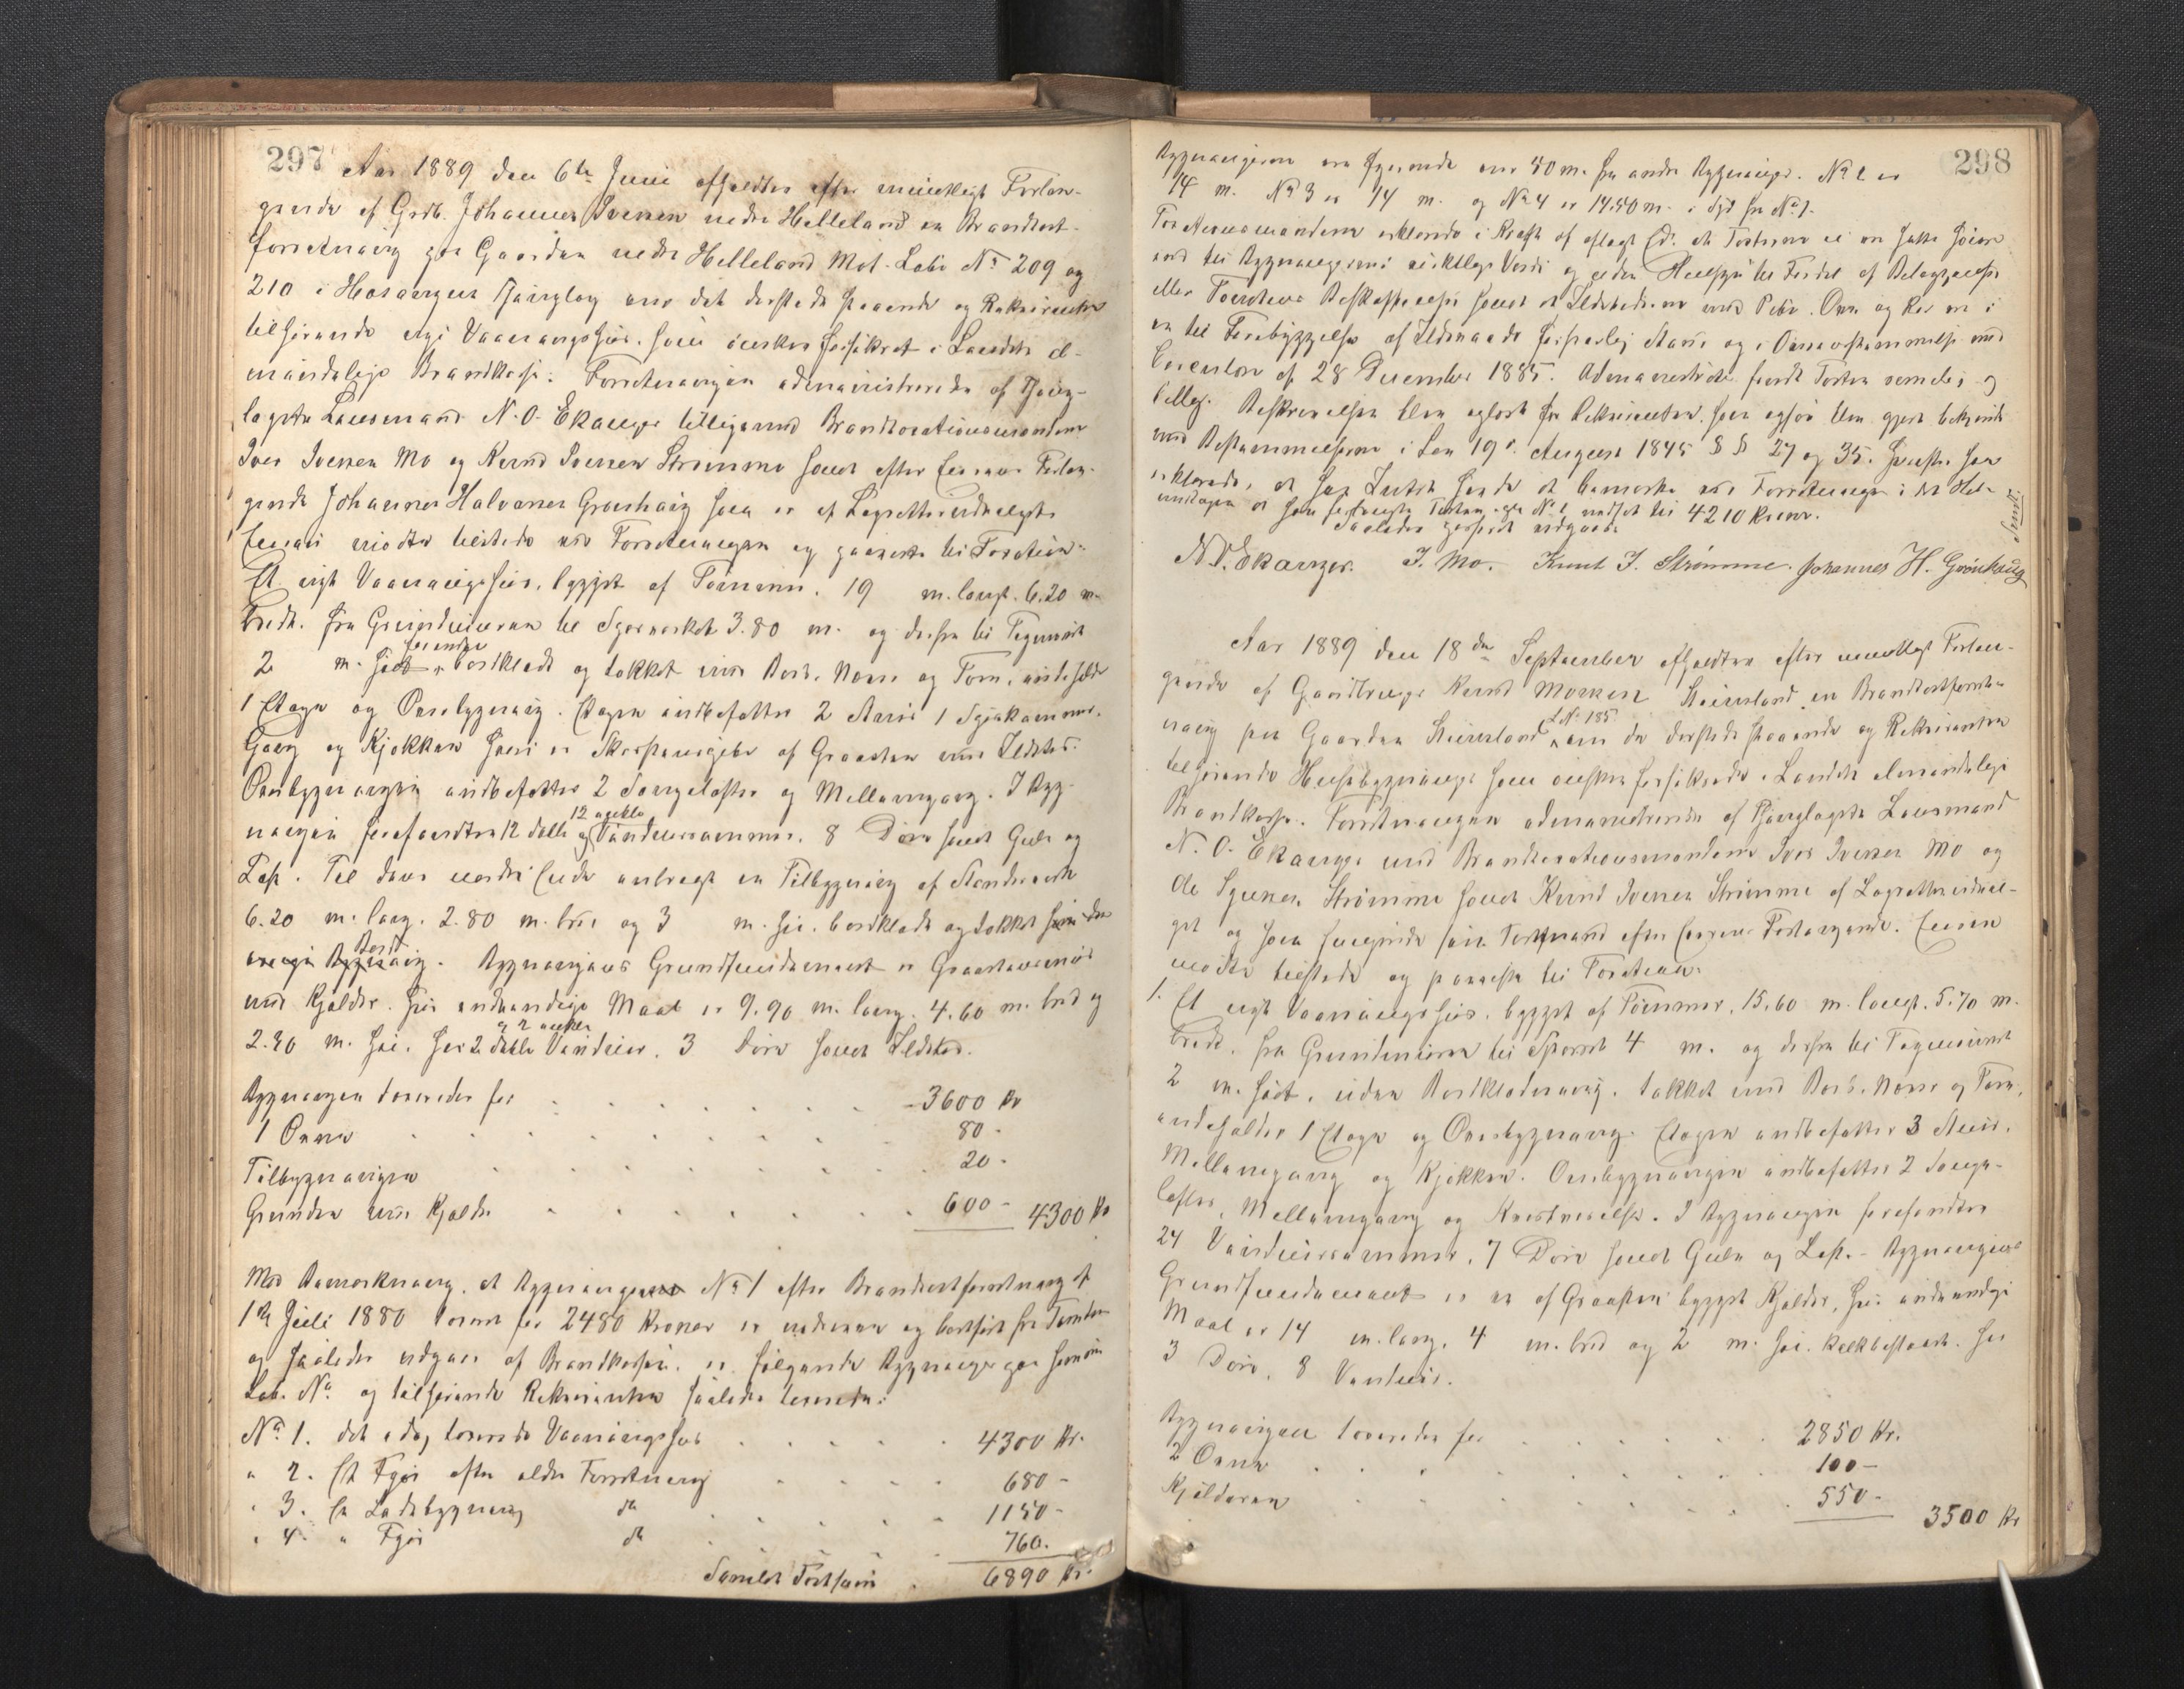 297
Aar 1889 den 6te Juni afholdtes efter mundtligt Forlan-
gende af Grdb. Johannes Iversen nedre Helleland en Brandtaxt-
forretning paa Gaarden nedre Helleland Mat. Løbe No 209 og
210 i Hosangers Thinglag over det dersteds staaende og Rekvirenten
tilhørende nye Vaaningshus, som ønskes forsikret i Landets al-
mindelige Brandkasse. Forretningen administreredes af Thing-
lagets Lensmand N. O. Ekanger tilligemed Brandtaxationsmændene
Iver Iversen Mo og Knud Iversen Strømme samt efter Forlan-
gende Johannes Halvorsen Grønhaug som er af Lagrettesudvalget.
mødte tilstede ved Forretningen og paaviste til Taxation:
Et nyt Vaaningshus, bygget af Tømmer, 19 m. langt, 6.20 m.
bredt, fra Grundmuren til Sperresket 3.80 m. og derfra til Tagmønet
2 m. høit, forøvrigt bordklædt og tækket med Bord, Næver og Torv, indeholder
1 Etage og Ovenbygning. Etagen indbefatter 2 Stuer 1 Spiskammer,
Gang og Kjøkken hvori er Skorstenspibe af Graasten med Ildsted.
Ovenbygningen indbefatter 2 Sengelofter og Mellemgang. I Byg-
ningen forefandtes 12 doble og 12 enkelte Vinduesrammer, 8 Døre samt Gulv og
Loft. Til dens nordre Ende anbragt en Tilbygning af Stenderværk
6.20 m. lang, 2.80 m. bred og 3 m. høi, bordklædt og tækket som den
øvrige Bygning. Bygningens Grundfundament er Graastensmur
med Kjælder, hvis indvendige Maal er 9.90 m. lang, 4.60 m. bred og
2.30 m. høi, har 2 doble og 2 enkelte Vinduer, 3 Døre samt Ildsted.
Bygningen taxeredes for 3600 Kr
1 Ovn 80 -
Tilbygningen 20 -
Grunden med Kjælder 600 - 4300 Kr
Med Bemærkning, at Bygningen No 1 efter Brandtaxtforretning af
1ste Juli 1880 taxeret for 2480 Kroner er nedrevet og bortført fra Tomten
og saaledes udgaar af Brandkassen, er følgende Bygninger paa samme
Løb. No og tilhørende Rekvirenten saaledes taxerede:
No 1. det i dag taxerede Vaaningshus 4300 Kr.
" 2. Et Fjøs efter ældre Forretning 680 -
" 3. En Ladebygning do 1150 -
" 4. " Fjøs do 760.
Samlet Taxtsum 6890 Kr.
298
Bygningerne ere liggende over 50 m. fra andre Bygninger. No 2 er
14 m. No 3 er 14 m. og No 4 er 14.50 m. i Syd fra No 1.
Taxationsmændene erklærede i Kraft af aflagt Ed, at Taxterne ei ere satte høiere
end til Bygningernes virkelige Værdi og uden Hensyn til Fordel af Beliggenhed
eller Tomtens Beskaffenhed samt at Ildstederne med Pibe, Ovn og Rør ere i
en til Forebyggelse af Ildsvaade forsvarlig Stand og i Overensstemmelse med
Circulær af 28 December 1885. Administrator fandt Taxten rimelig og
billig. Beskrivelsen blev oplæst for Rekvirenten, som ogsaa blev gjort bekjendt
med Bestemmelserne i Lov 19de August 1845 §§ 27 og 35. hvorefter han
erklærede, at han Intet havde at bemærke ved Forretningen i det Hele
undtagen at han forlangte Taxten paa No 1 nedsat til 4210 Kroner.
Saaledes passeret udgaar.
N. O. Ekanger. I. Mo. Knut I. Strømme. Johannes H. Grønhaug
Aar 1889 den 18de September afholdtes efter mundtligt Forlan-
gende af Gaardbruger Knud Monsen en Brandtaxtforret-
ning paa Gaarden L.No 185 over de dersteds staaende og Rekvirenten
tilhørende Husebygninger som ønskes forsikrede i Landets almindelige
Brandkasse. Forretningen administreredes af Thinglagets Lensmand
N. O. Ekanger med Brandtaxationsmændene Iver Iversen Mo og
Ole Strømme samt Knud Iversen Strømme af Lagrettesudval-
get og som fungerede som Taxtmand efter Forlangende.
mødte tilstede og paaviste til Taxation:
1. Et nyt Vaaningshus, bygget af Tømmer, 15.60 m. langt, 5.70 m.
bredt, fra Grundmuren til Sperret 4 m. og derfra til Tagmønet
2 m. høit, uden Bordklædning, tækket med Bord, Næver og Torv,
indeholder 1 Etage og Ovenbygning. Etagen indbefatter 3 Stuer,
Mellemgang og Kjøkken. Ovenbygningen indbefatter 2 Senge-
lofter, Mellemgang og Kvistværelse. I Bygningen forefandtes
24 Vinduesrammer, 7 Døre samt Gulv og Loft. - Bygningens
Grundfundament er en af Graasten bygget Kjælder, hvis indvendige
Maal er 14 m. lang, 4 m. bred og 2 m. høi, kalkbestøbt, har
3 Døre, 8 Vinduer.
Bygningen taxeredes for 2850 Kr.
2 Ovne 100 -
Kjælderen 550 -
3500 Kr